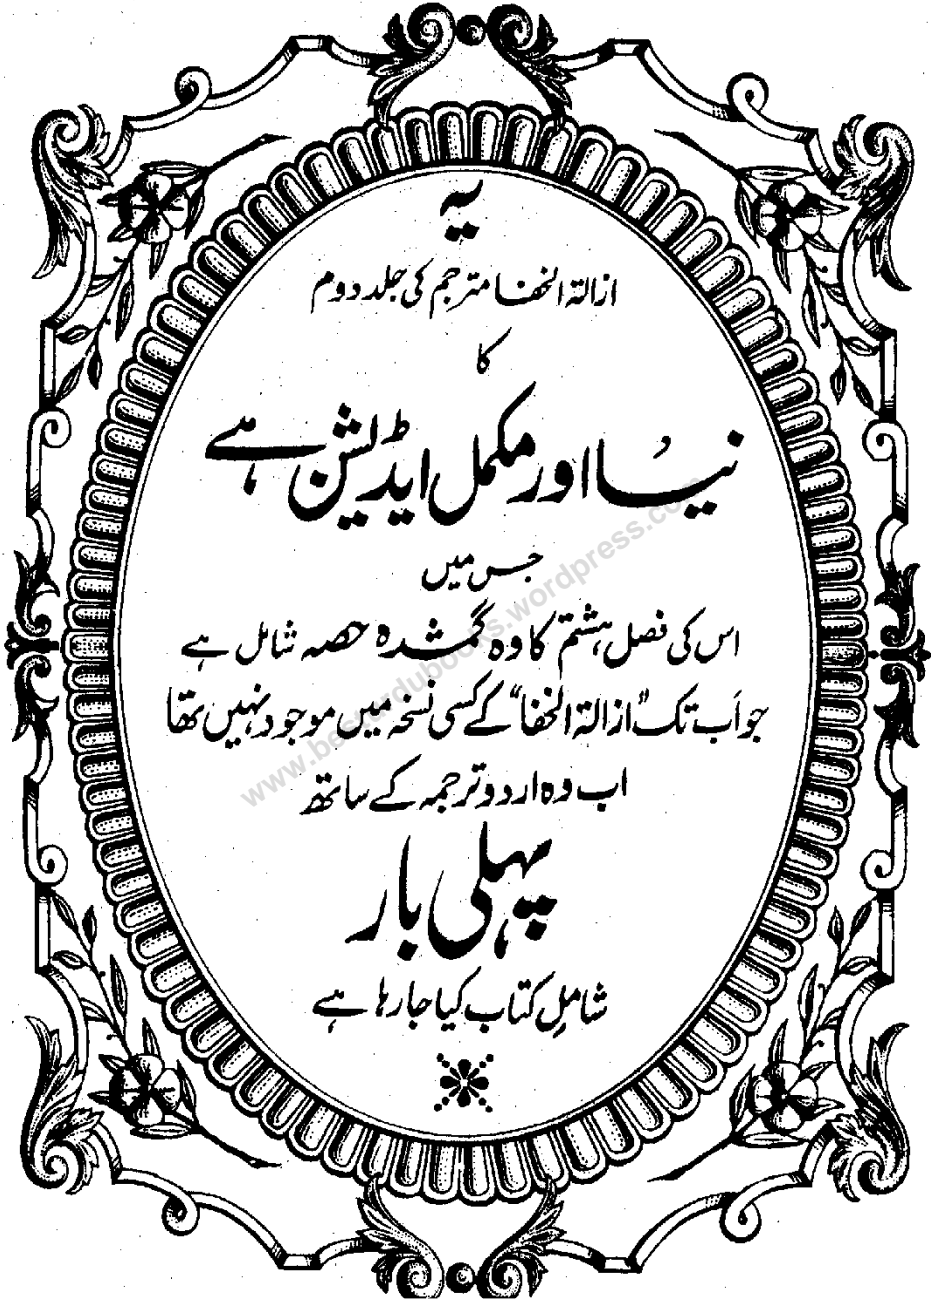 یہ
ازالۃ الخفا مترجم کی جلد دوم
کا
نیا اور مکمل ایڈیشن ہے
جس میں
اس کی فصل ہشتم کا وہ گمشدہ حصہ شامل ہے
جو اَب تک "ازالۃ الخفا" کے کسی نسخہ میں موجود نہیں تھا
اب وہ اردو ترجمہ کے ساتھ
پہلی بار
شاملِ کتاب کیا جا رہا ہے
www.besturdubooks.wordpress.com